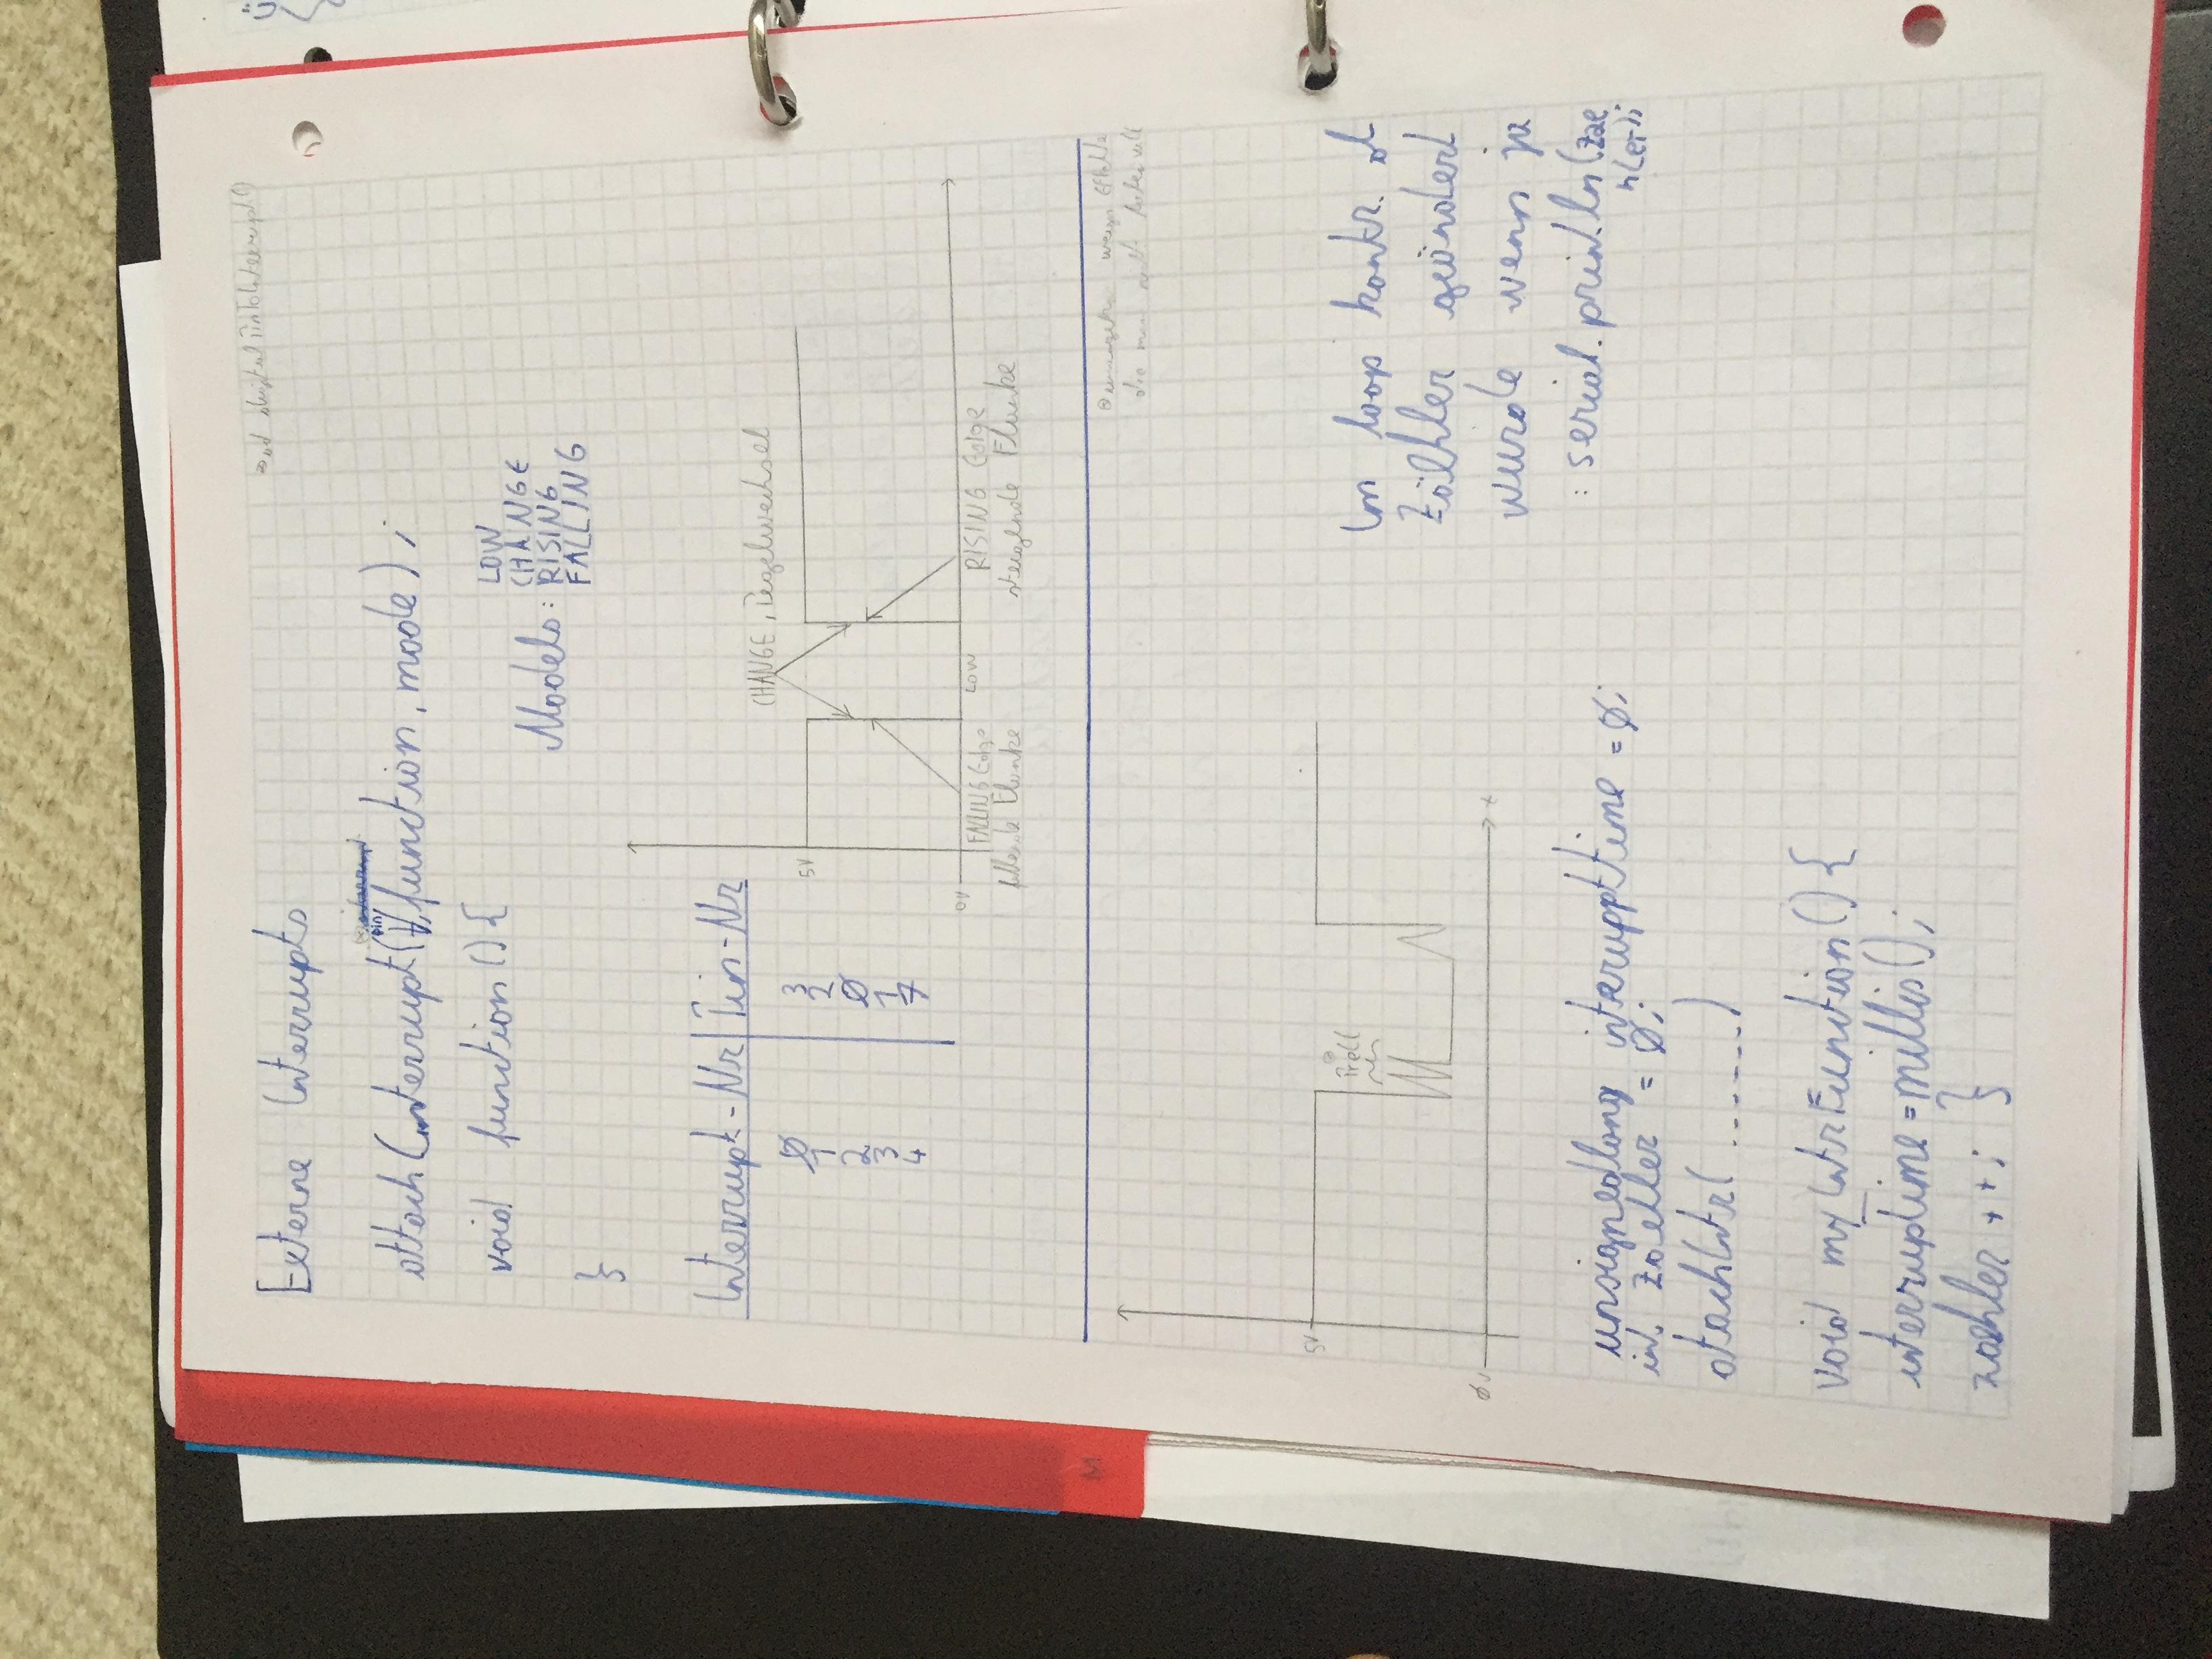 digitalPinToInterrupt()
Externe Interrupts
pin
attachInterrupt( , function, mode);
void function(){
}
Models:
LOW
CHANGE
RISING
FALLING
Interrupt-Nr Pin-Nr
0 3
1 2
2 0
3 1
4 7
CHANGE, Pegelwechsel
5V
0V
FALLING Edge
LOW
RISING Edge
fallende Flanke
steigende Flanke
wegen Effekte
die man nicht haben will
5V
Prell
0V
t
Im loop kontr. ob
Zäehler geändert
wurde wenn ja
: serial.println(zae
hler);
unsignedlong interuppttime = 0;
int zaehler = 0;
atachIntr( ....... )
void my_IntrFunction(){
interrupTime = millis();
zaehler ++; }
M